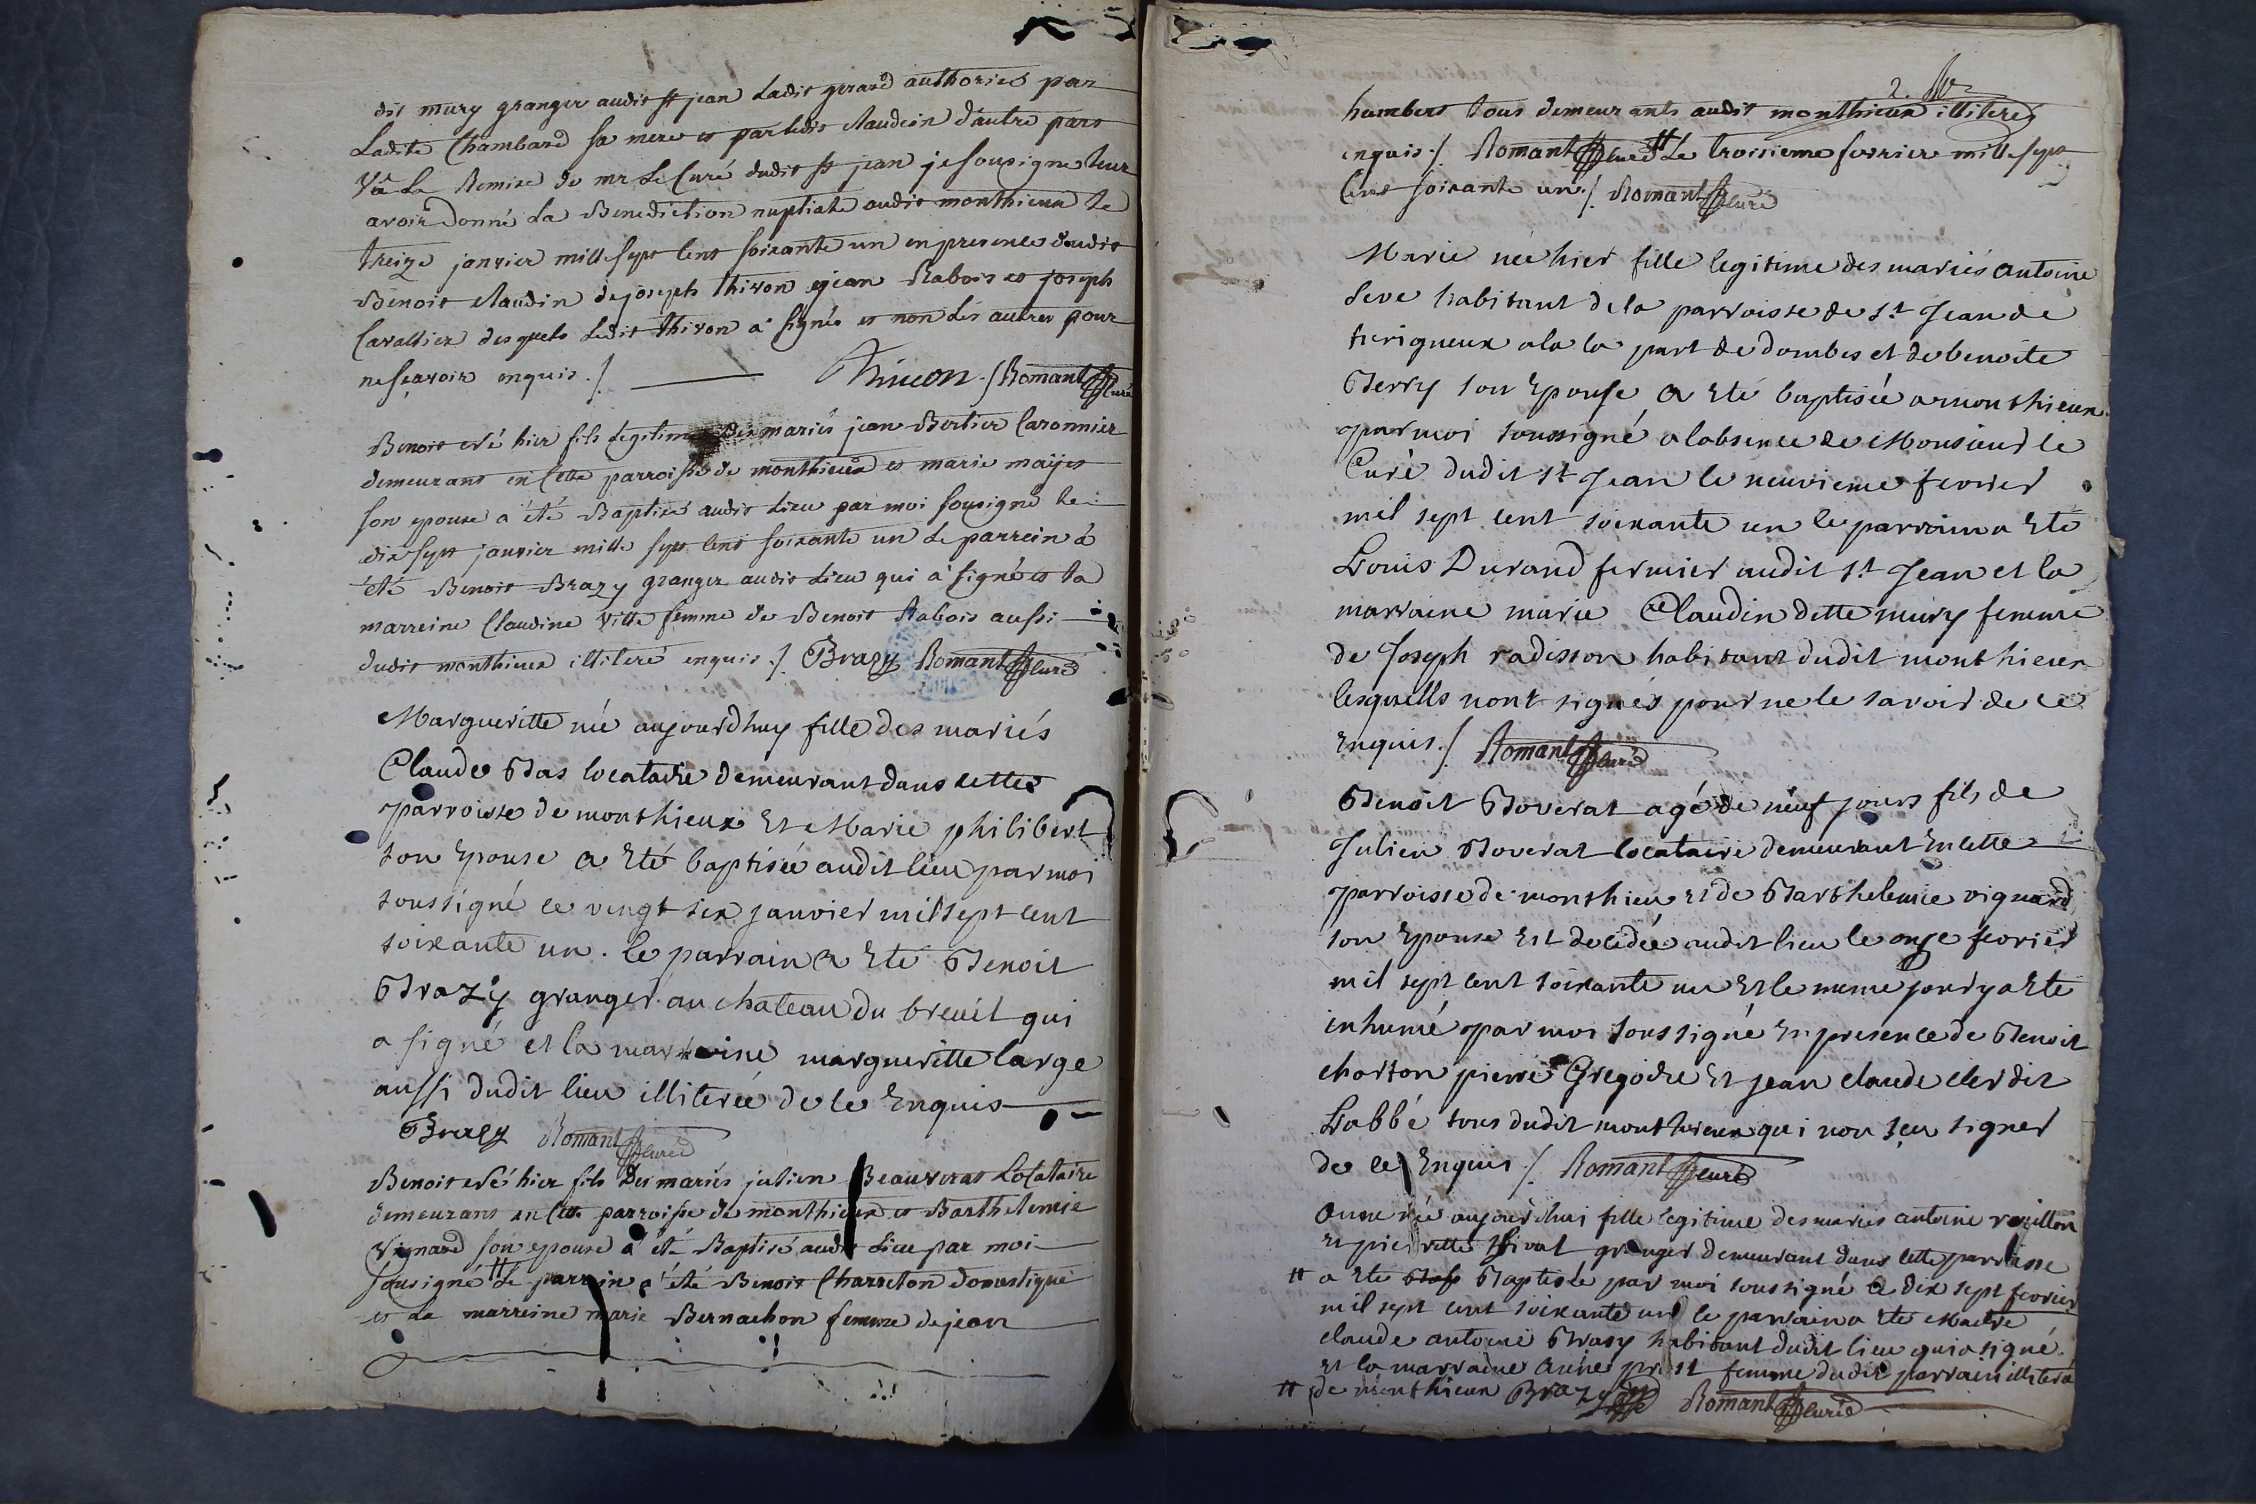 dit mury granger audit st jean Ladit gerard authorisé par
Ladite Chambard sa mere et par ledit Claudin d'autre part
Vû La Remise de mr Le Curé dudit st jean je sousigne leur
avoir donné La Benediction nuptiale audit monthieux le
treize janvier mille sept cent soixante un en presence dudit
Benoit Claudin de joseph thivon jean Rabois et joseph
Cavallier desquels Ledit thivon a signé et non Les autres pour
ne sçavoir enquis ./. Thivon ./. Romant Curé
Benoit né hier fils legitime Des mariés jean Bertier Caronnier
demeurant en Cette parroisse de monthieux et marie
son epouse a été Baptisé audit Lieu par moi sousigné le
dix sept janvier mille sept cent soixante un Le parrein a
été Benoit Brazy granger audit Lieu qui a signé et la
marreine Claudine Ville femme de Benoit Rabois aussi
dudit monthieux illiteré enquis ./. Brazy Romant Curé
Margueritte née aujourdhuy fille des mariés
Claude Bas locataire demeurant dans cette
parroisse de monthieux Et Marie philibert
son Epouse a Eté baptisée audit lieu par moi
soussigné ce vingt six janvier mil sept cent
soixante un . le parrain a Eté Benoit
Brazy granger au chateau du breuil qui
a signé et la marraine margueritte large
aussi dudit lieu illiterée de ce Enquis
Brazy Romant Curé
Benoit né hier fils Des mariés julien Beauverat Locataire
demeurant en Cette parroisse de monthieux et Barthelemie
Vignard son epouse a été Baptisé audit Lieu par moi
sousigné # Le parrein a été Benoit Charreton domestique
et La marreine marie Bernachon femme de jean
2.
humbert tous demeurants audit monthieux illiterés
enquis ./. Romant Curé # Le troisieme fevrier mille sept
Cent soixante un ./. Romant Curé
Marie née hier fille legitime des mariés antoine
Seve habitant de la parroisse de St Jean de
turigneux a la la part de dombes et de benoite
Berry son Epouse a Eté baptisée a monthieux
par moi soussigné a labsence de Monsieur le
Curé dudit St Jean le neuvieme fevrier
mil sept cent soixante un le parrain a Eté
Louis Durand fermier audit St Jean et la
marraine marie Claudin dette mury femme
de Joseph radisson habitant dudit monthieux
lesquells nont signés pour ne le savoir de ce
Enquis ./. Romant Curé
Benoit Boverat agé de neuf jours fils de
Julien Boverat locataire demeurant En cette
parroisse de monthieu et de Barthelemie vignard
son Epouse Est decedée audit lieu le onze fevrier
mil sept cent soixante un Et le meme jour y a Eté
inhumé par moi soussigné En presence de Benoit
chorton pierre Gregoire Et jean claude clerdit
Labbé tous dudit monthieux qui non sçu signer
de ce Enquis ./. Romant Curé
anne née aujourdhui fille legitime des mariés antoine
Et pierrette granger demeurant dans cette parroisse
# a Eté Baptisée par moi soussigné le dix sept fevrier
mil sept cent soixante un le parrain a Eté Maitre
claude antoine Brazy habitant dudit lieu qui a signé
et la marraine anne prost femme dudit parrain illiterée
# de monthieux Brazy Romant Curé